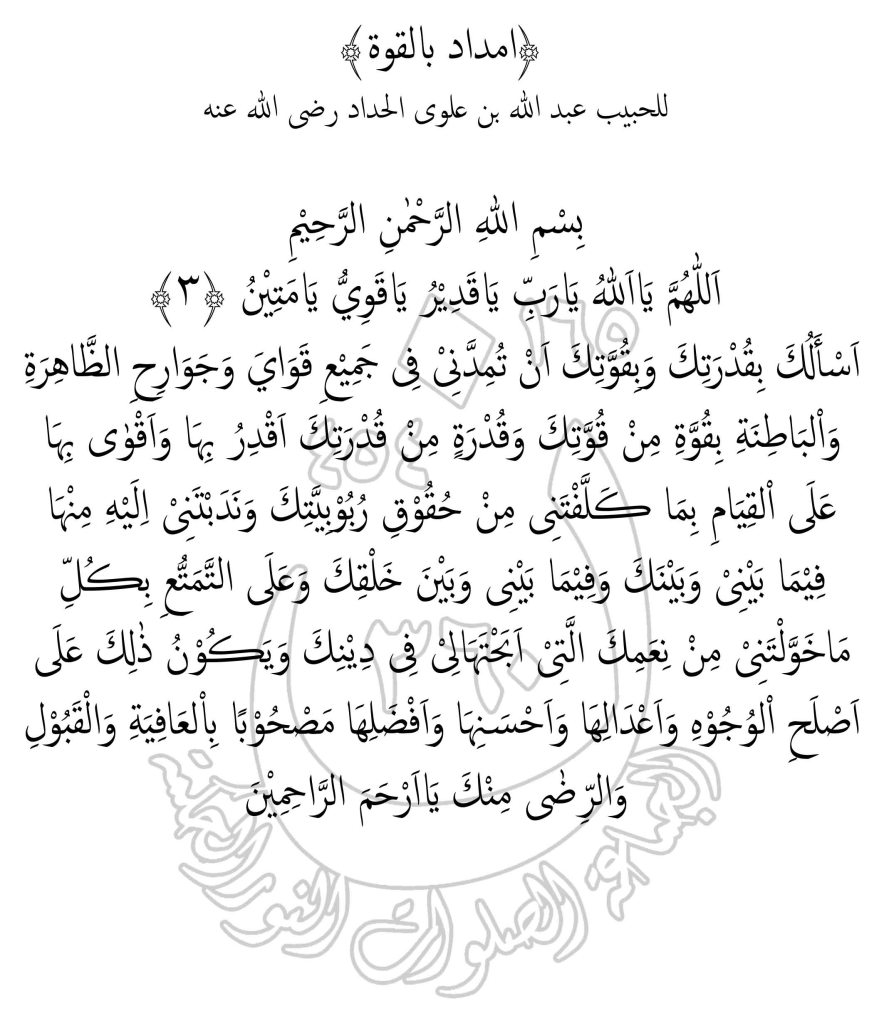 ﴿امداد بالقوة﴾
للحبيب عبد الله بن علوى الحداد رضى الله عنه
بِسْمِ اللهِ الرَّحْمٰنِ الرَّحِيْمِ
اَللّٰهُمَّ يَااَللهُ يَارَبِّ يَاقَدِيْرُ يَاقَوِيُّ يَامَتِيْنُ ﴿٣﴾
اَسْأَلُكَ بِقُدْرَتِكَ وَبِقُوَّتِكَ اَنْ تُمِدَّنِىْ فِى جَمِيْعِ قَوَايَ وَجَوَارِحِ الظَّاهِرَةِ
وَاْلبَاطِنَةِ بِقُوَّةِ مِنْ قُوَّتِكَ وَقُدْرَةٍ مِنْ قُدْرَتِكَ اَقْدِرُ بِهَا وَاَقْوٰى بِهَا
عَلَى اْلقِيَامِ بِمَا كَلَّفْتَنِى مِنْ حُقُوْقِ رُبُوْبِيَّتِكَ وَنَدَبْتَنِىْ اِلَيْهِ مِنْهَا
فِيْمَا بَيْنِىْ وَبَيْنَكَ وَفِيْمَا بَيْنِى وَبَيْنَ خَلْقِكَ وَعَلَى التَّمَتُّعِ بِكُلِّ
مَاخَوَّلْتَنِىْ مِنْ نِعَمِكَ الَّتِىْ اَبَحْتَهَالِىْ فِى دِيْنِكَ وَيَكُوْنُ ذٰلِكَ عَلَى
اَصْلَحِ اْلوُجُوْهِ وَاَعْدَالِهَا وَاَحْسَنِهَا وَاَفْضَلِهَا مَصْحُوْبًا بِاْلعَافِيَةِ وَالْقَبُوْلِ
وَالرِّضٰى مِنْكَ يَااَرْحَمَ الرَّاحِمِيْنَ
٤٥٤
٣٦٠
الصلوات